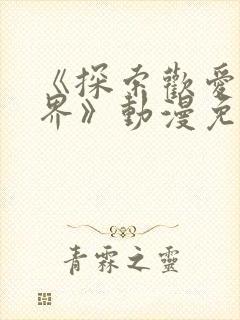 《探索歡愛
界》動漫免
青霖之靈